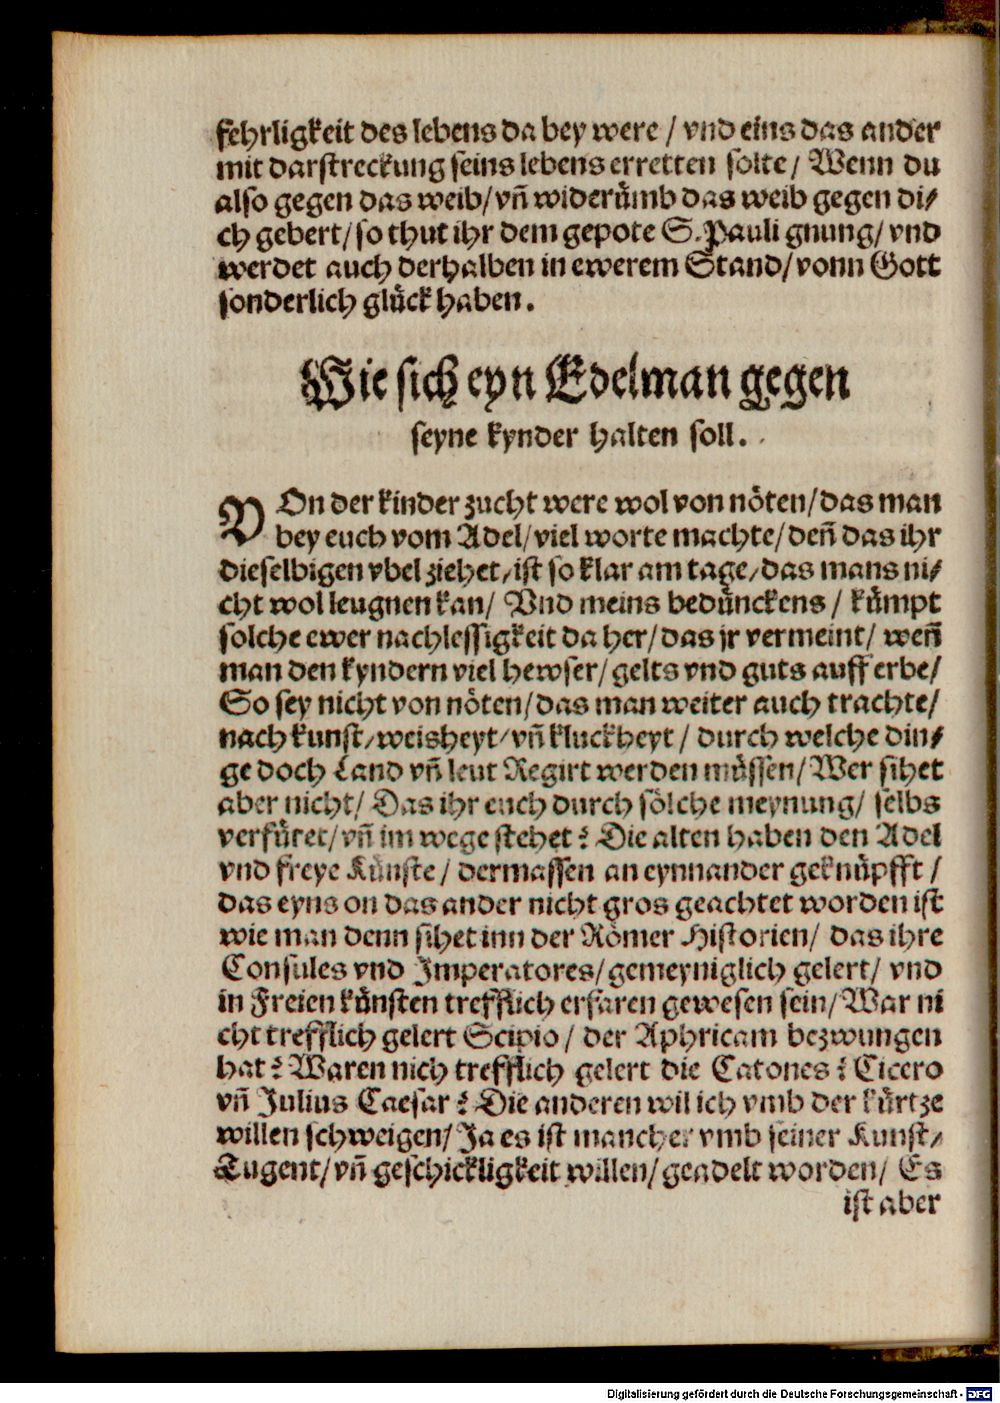 fehrligkeit des lebens da bey were / vnd eins das ander
mit darstreckung seins lebens erretten solte / Wenn du
also gegen das weib / vñ widerümb das weib gegen di⸗
ch gebert / so thut ihr dem gepote S. Pauli gnung / vnd
werdet auch derhalben in ewerem Stand / vonn Gott
sonderlich glück haben.
Wie sich eyn Edelman gegen
seyne kynder halten soll.
VOn der kinder zucht were wol von nöten / das man
bey euch vom Adel / viel worte machte / deñ das ihr
dieselbigen vbel ziehet / ist so klar am tage / das mans ni⸗
cht wol leugnen kan / Vnd meins bedünckens / kümpt
solche ewer nachlessigkeit da her / das jr vermeint / weñ
man den kyndern viel hewser / gelts vnd guts auff erbe /
So sey nicht von nöten / das man weiter auch trachte /
nach kunst / weisheyt / vñ kluckheyt / durch welche din⸗
ge doch Land vñ leut Regirt werden müssen / Wer sihet
aber nicht / Das ihr euch durch sölche meynung / selbs
verfüret / vñ im wege stehet? Die alten haben den Adel
vnd freye Künste / dermassen an eynnander geknüpfft /
das eyns on das ander nicht gros geachtet worden ist
wie man denn sihet inn der Römer Historien / das ihre
Consules vnd Imperatores / gemeyniglich gelert / vnd
in Freien künsten trefflich erfaren gewesen sein / War ni
cht trefflich gelert Scipio / der Aphricam bezwungen
hat? Waren nich trefflich gelert die Catones? Cicero
vñ Julius Caesar? Die anderen wil ich vmb der kürtze
willen schweigen / Ja es ist mancher vmb seiner Kunst /
Tugent / vñ geschickligkeit willen / geadelt worden / Es
ist aber
Digitalisierung gefördert durch die Deutsche Forschungsgemeinschaft - DFG